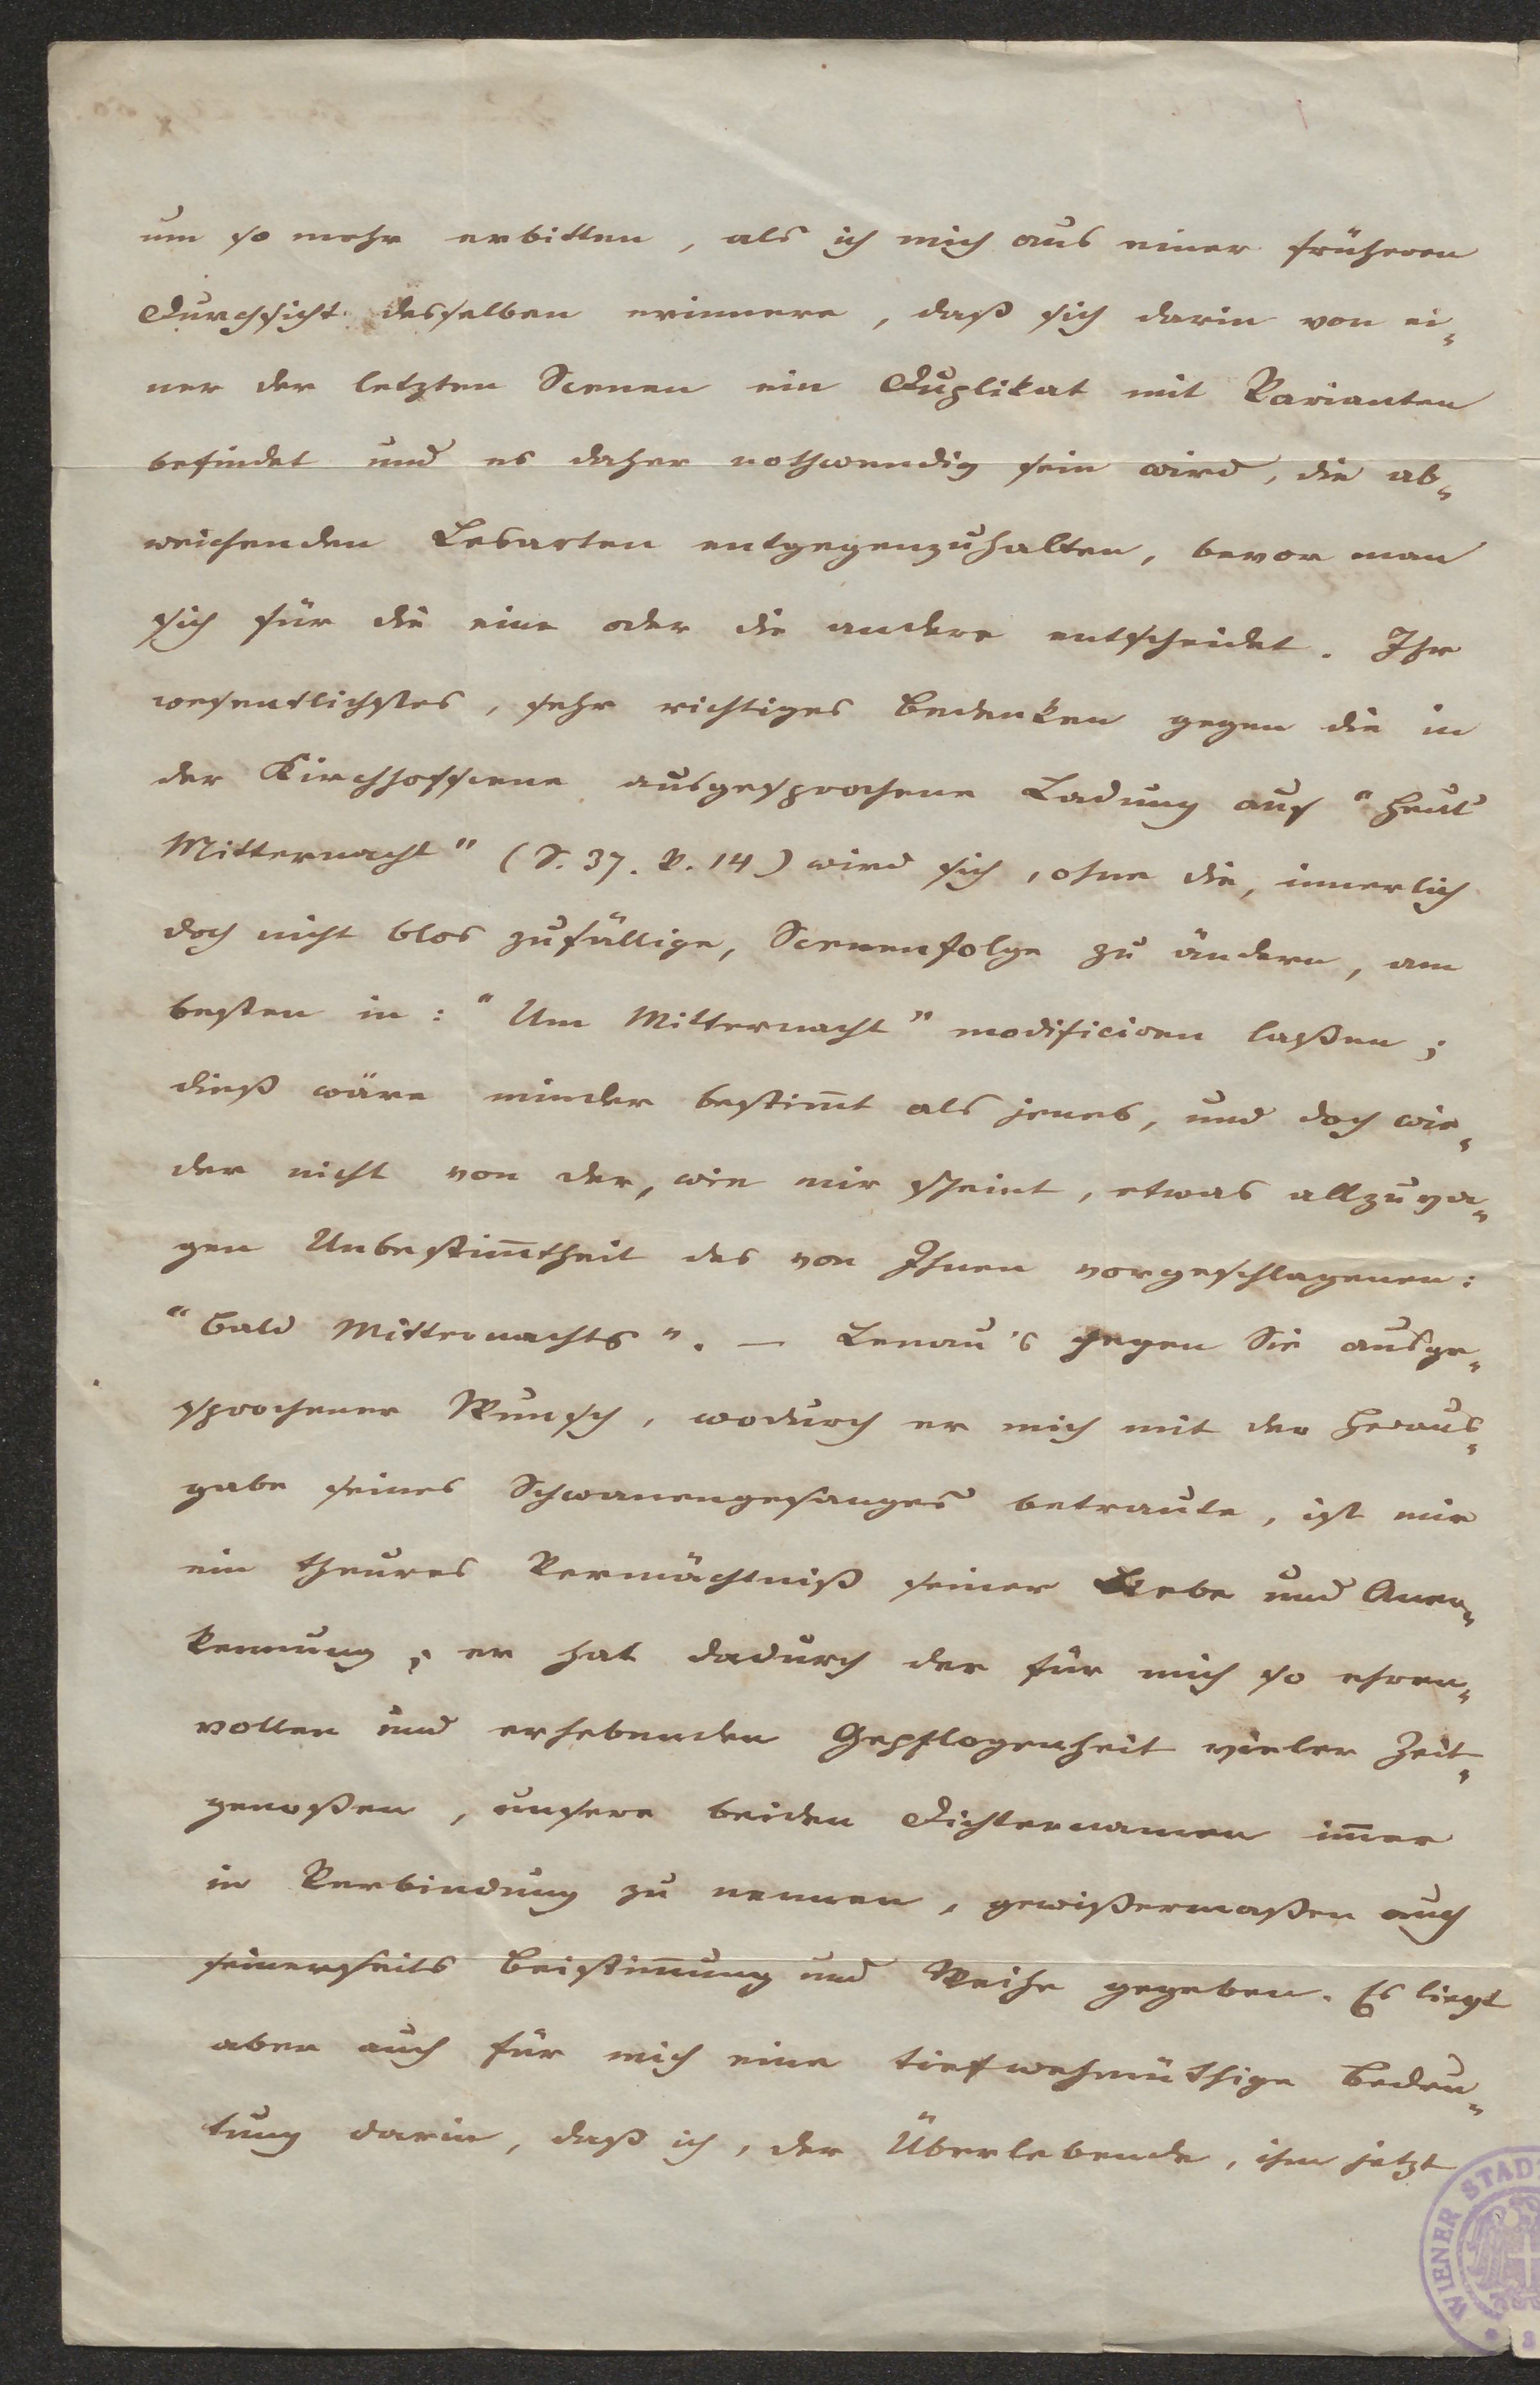 um so mehr erbitten, als ich mich aus einer früheren
Durchsicht desselben erinnere, daß sich darin von ei¬
ner der letzten Scenen ein Duplikat mit Varianten
befindet und es daher nothwendig sein wird, die ab¬
weichenden Lesarten entgegenzuhalten, bevor man
sich für die eine oder die andere entscheidet. Ihr
wesentlichstes, sehr richtiges Bedenken gegen die in
der Kirchhofscene ausgesprochene Ladung auf "heut
Mitternacht" (S. 37. V. 14) wird sich, ohne die, innerlich
doch nicht blos zufällige, Scenenfolge zu ändern, am
besten in: "Um Mitternacht" modificiren laßen;
dieß wäre minder bestim̅t als jenes, und doch wie¬
der nicht von der, wie mir scheint, etwas allzuva¬
gen Unbestim̅theit des von Ihnen vorgeschlagenen:
"bald Mitternachts". — Lenau's gegen Sie ausge¬
sprochener Wunsch, wodurch er mich mit der Heraus¬
gabe seines Schwanengesanges betraute, ist mir
ein theures Vermächtniß seiner Liebe und Aner¬
kennung; er hat dadurch der für mich so ehren¬
vollen und erhebenden Gepflogenheit vieler Zeit¬
genoßen, unsere beiden Dichternamen im̅er
in Verbindung zu nennen, gewißermaßen auch
seinerseits Beistim̅ung und Weihe gegeben. Es liegt
aber auch für mich eine tiefwehmüthige Bedeu¬
tung darin, daß ich, der Überlebende, ihm jetzt
WIENER STAD